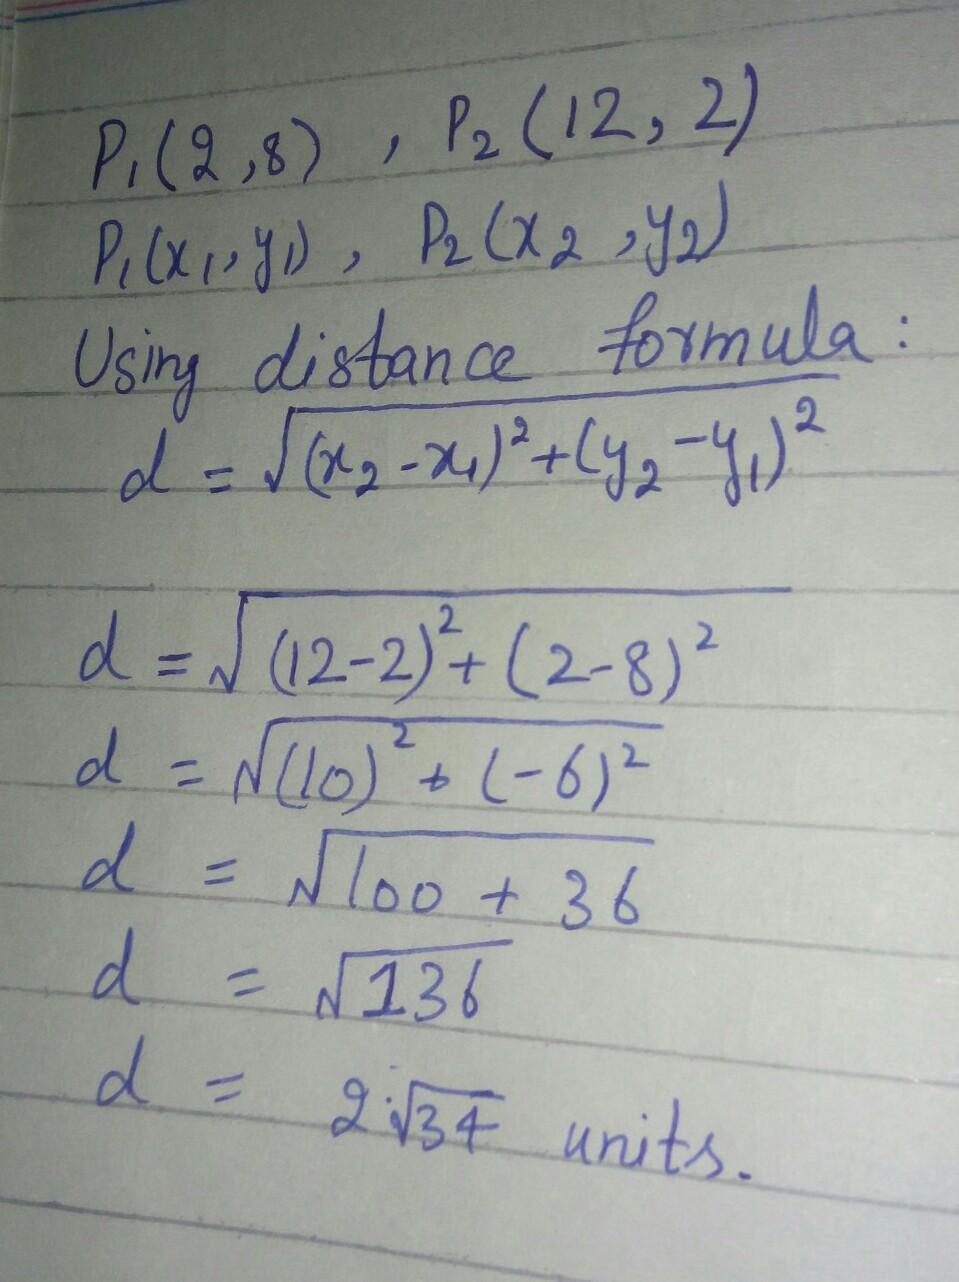 P₁(2,8) , P₂(12, 2)
P₁(x₁, y₁) , P₂(x₂, y₂)
Using distance formula :
d = √(x₂-x₁)²+(y₂-y₁)²
d = √(12-2)²+(2-8)²
d = √(10)²+(-6)²
d = √100 + 36
d = √136
d = 2√34 units.